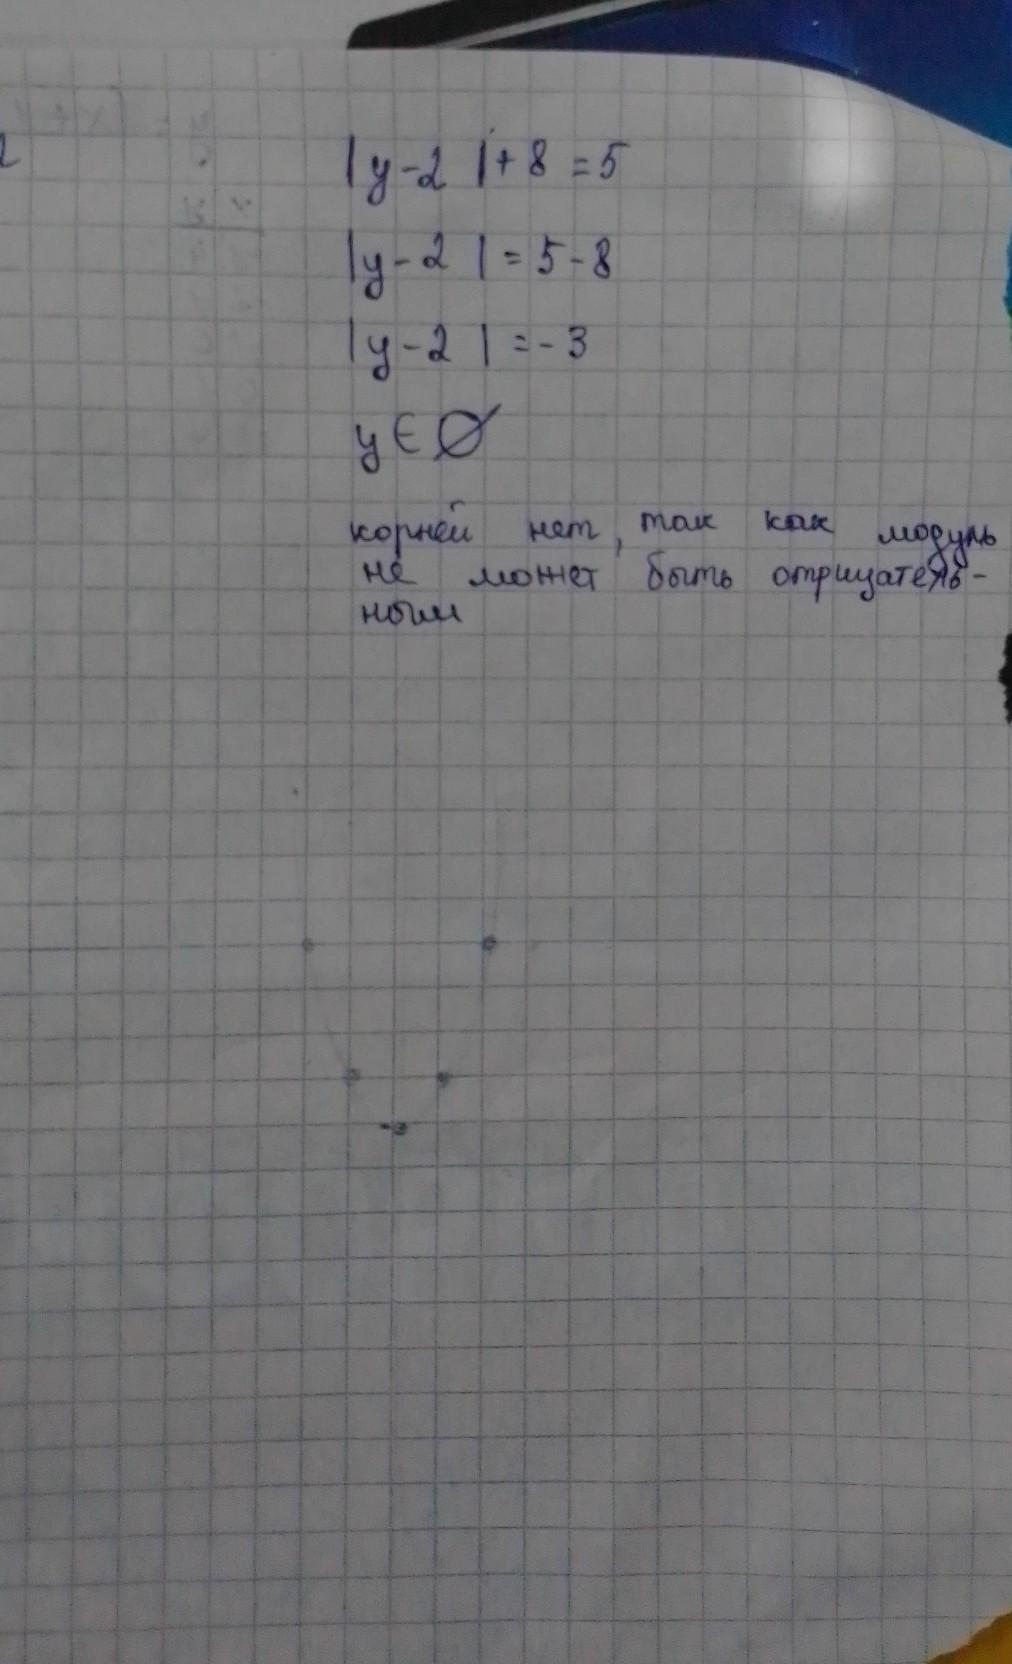 |y-2|+8=5
|y-2|=5-8
|y-2|=-3
y∈∅
корней нет, так как модуль
не может быть отрицатель-
ным